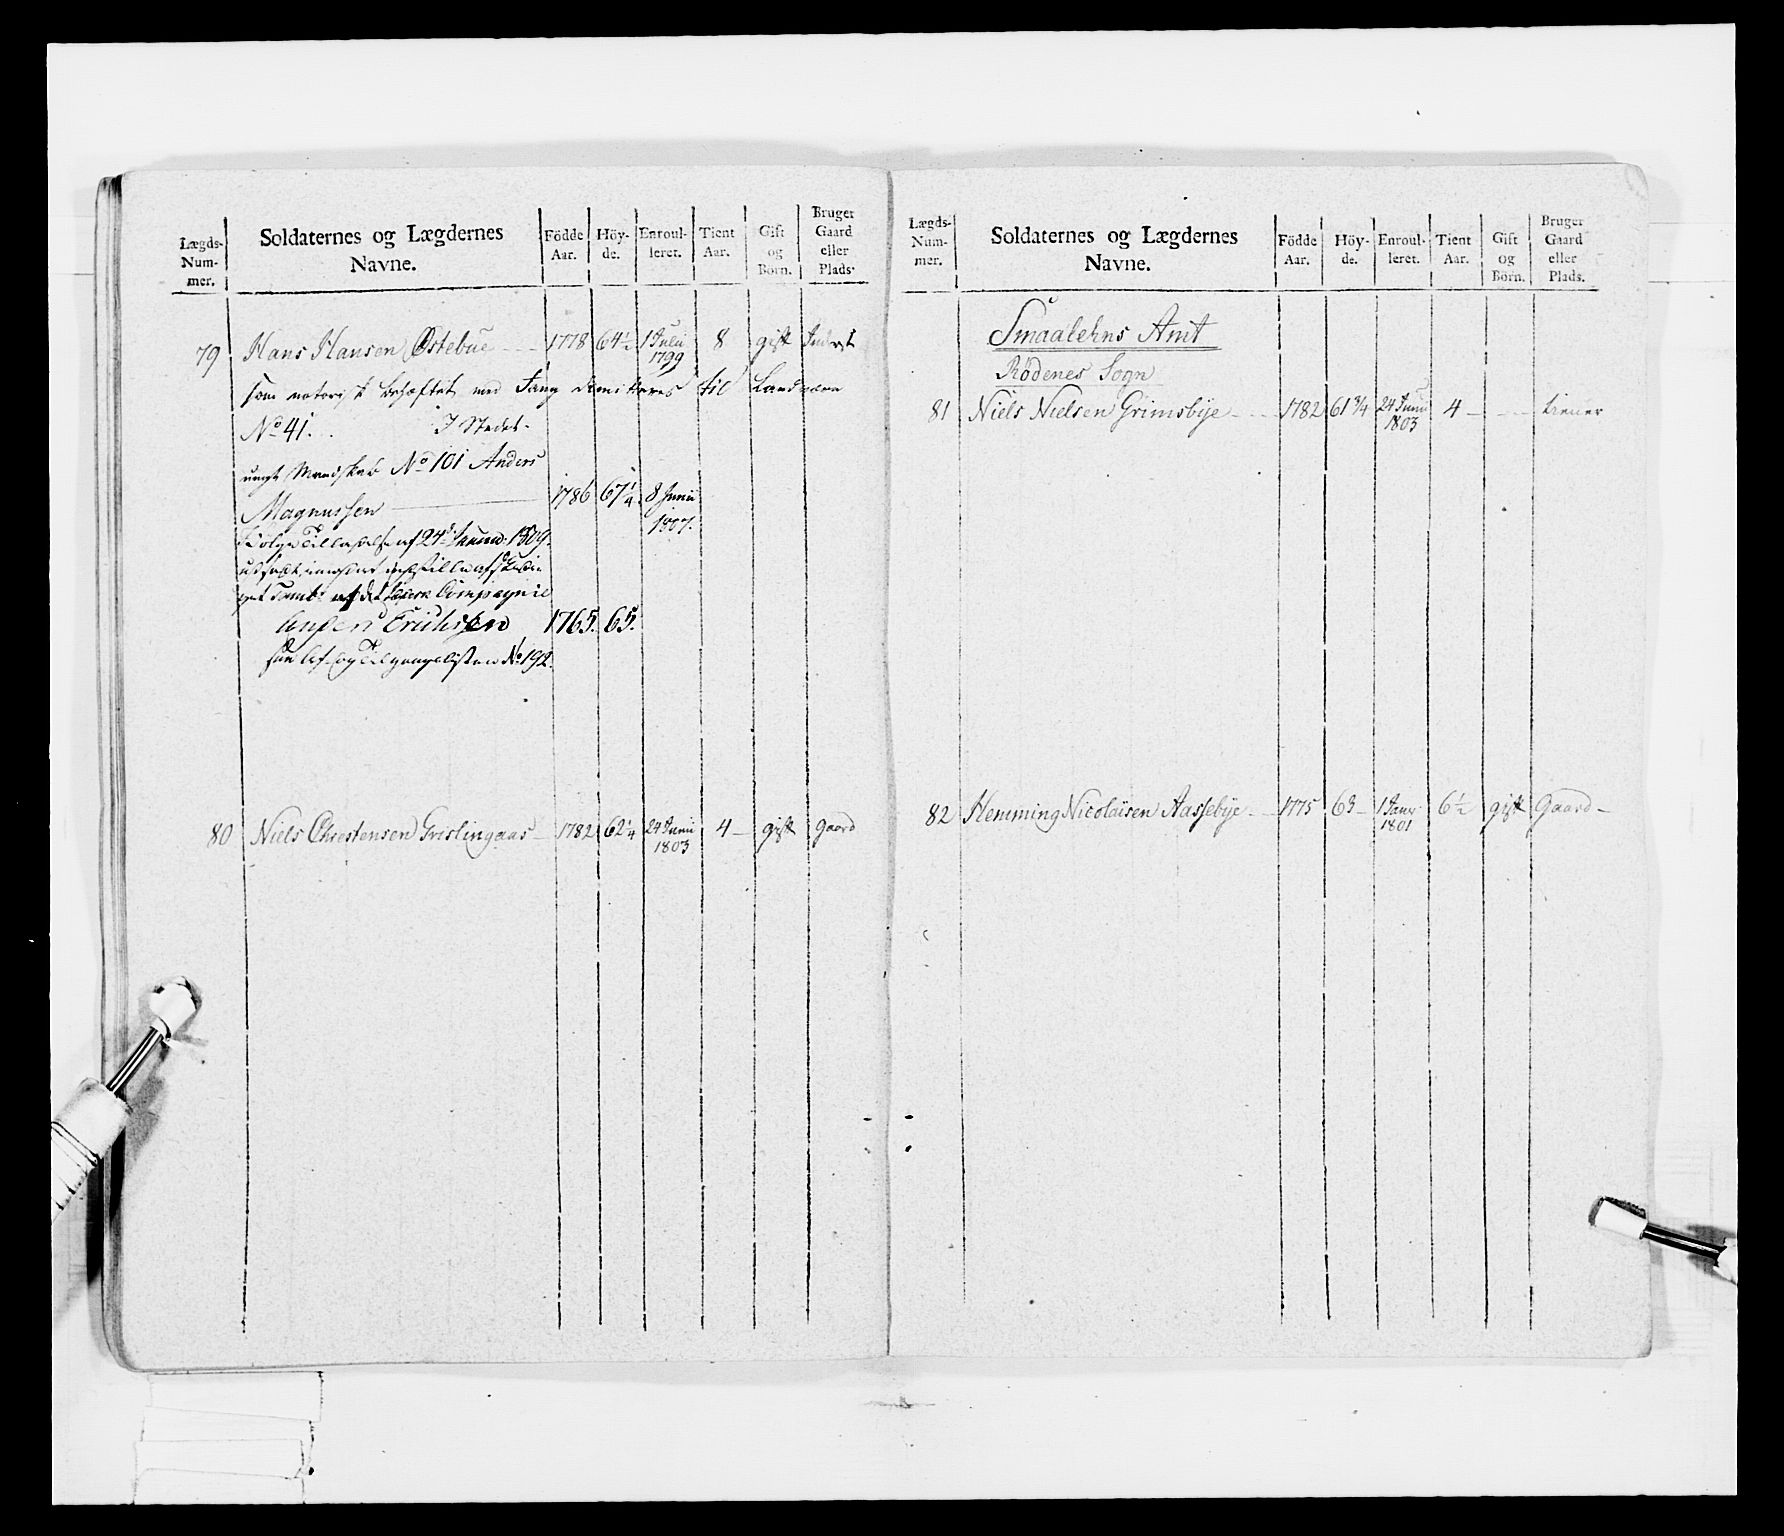 Lægds- Num- mer.
Soldaternes og Lægdernes Navne.
Födde Aar.
Höy- de.
Enroul- leret.
Tient Aar.
Gift og Börn.
Bruger Gaard eller Plads.
79 Hans Hansen Østebye 1778 64 1/2 1 Julii 1799 8 gift Inderst
som notorisk behæftet med Svag dimitteres til Landværn
No 41. I Stedet
ungt Mandskab No 101 Anders
Magnussen 1786 67 1/4 8 Junii 1807.
Ifølge Tilladelse af 24de 1809.
af det Compagnie
Erichsen 1765. 65.
See Af- og Tilgangslisten No 192.
80 Niels Chrestensen Grislingaas 1782 62 1/4 24 Junii 1803 4 gift Gaard
Lægds- Num- mer.
Soldaternes og Lægdernes Navne.
Födde Aar.
Höy- de.
Enroul- leret.
Tient Aar.
Gift og Börn.
Bruger Gaard eller Plads.
Smaalehns Amt
Rødenes Sogn
81 Niels Nielsen Grimsbye 1782 61 3/4 24 Junii 1803 4 tiener
82 Hemming Nicolaisen Aassebye 1775 63 1 Janr 1801 6 1/2 gift Gaard